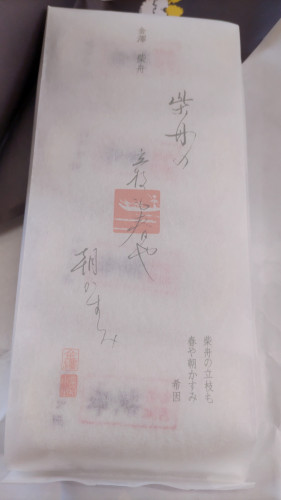 金澤 柴舟
柴舟の
立枝も春や
朝かすみ
柴舟の立枝も
春や朝かすみ
希因